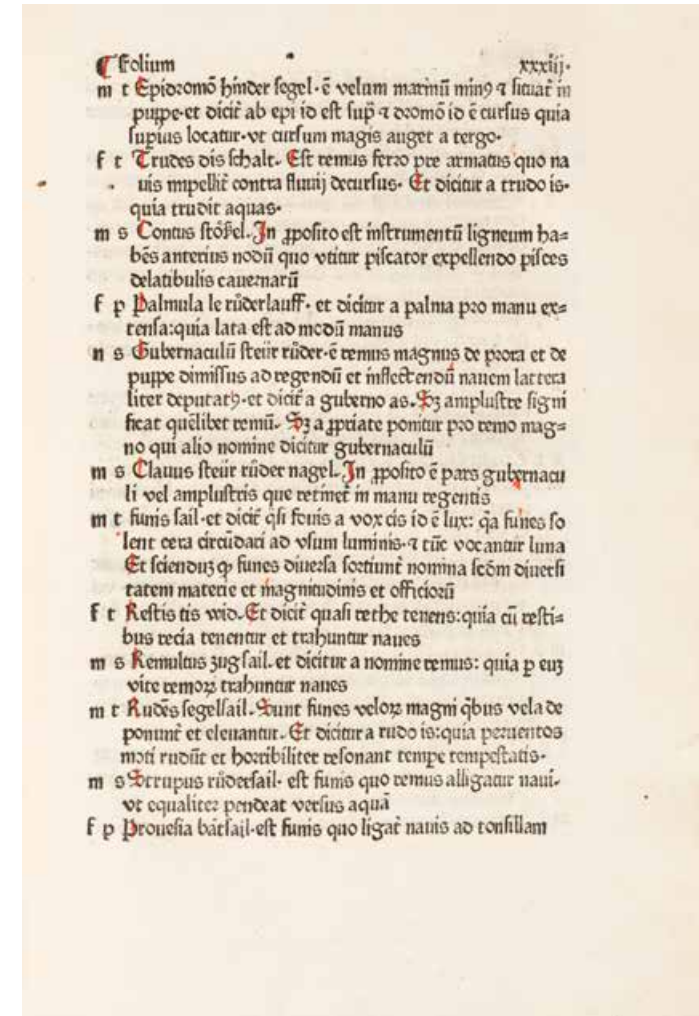 ¶ Folium xxxiij.
m t Epidromō hinder segel. ē velum marinū minꝰ ⁊ situat̄ in
puppe. et dicit̄ ab epi id est sup̄ ⁊ dromō id ē cursus quia
supius locatur. vt cursum magis auget a tergo.
f t Trudes dis schalt. Est remus ferro pre armatus quo na
uis impellit̄ contra fluuij decursus. Et dicitur a trudo is.
quia trudit aquas.
m s Contus stöſſel. In ꝓposito est instrumentū ligneum ha=
bēs anterius nodū quo vtitur piscator expellendo pisces
delatibulis cauernarū
f p Palmula le růderlauff. et dicitur a palma pro manu ex=
tensa: quia lata est ad modū manus
n s Gubernaculū steür růder. ē remus magnus de prora et de
puppe dimissus ad regendū et inflectendū nauem lattera
liter deputatꝰ. et dicit̄ a guberno as. Sꝫ amplustre signi
ficat quēlibet remū. Sꝫ a ꝓpriate ponitur pro remo mag=
no qui alio nomine dicitur gubernaculū
m s Clauus steür růder nagel. In ꝓposito ē pars gubernacu
li vel amplustris que retinet̄ in manu regentis
m t funis sail. et dicit̄ q̄si fonis a vox cis id ē lux: q̄a funes so
lent cera circūdari ad vsum luminis. ⁊ tūc vocantur luna
Et scienduꝫ ꝙ funes diuersa sortiunt̄ nomina scōm diuersi
tatem materie et magnitudinis et officiorū
f t Restis tis wid. Et dicit̄ quasi rethe tenens: quia cū resti=
bus recia tenentur et trahuntur naues
m s Remultus zugsail. et dicitur a nomine remus: quia p euꝫ
vite remoꝝ trahuntur naues
m t Rudēs segelsail. Sunt funes veloꝝ magni q̄bus vela de
ponunt̄ et eleuantur. Et dicitur a rudo is: quia peruentos
moti rudūt et horribiliter resonant tempe tempestatis.
m s Strupus růdersail. est funis quo remus alligatur naui.
vt equaliter pendeat versus aquā
f p Prouesia bātsail. est funis quo ligat̄ nauis ad tonsillam